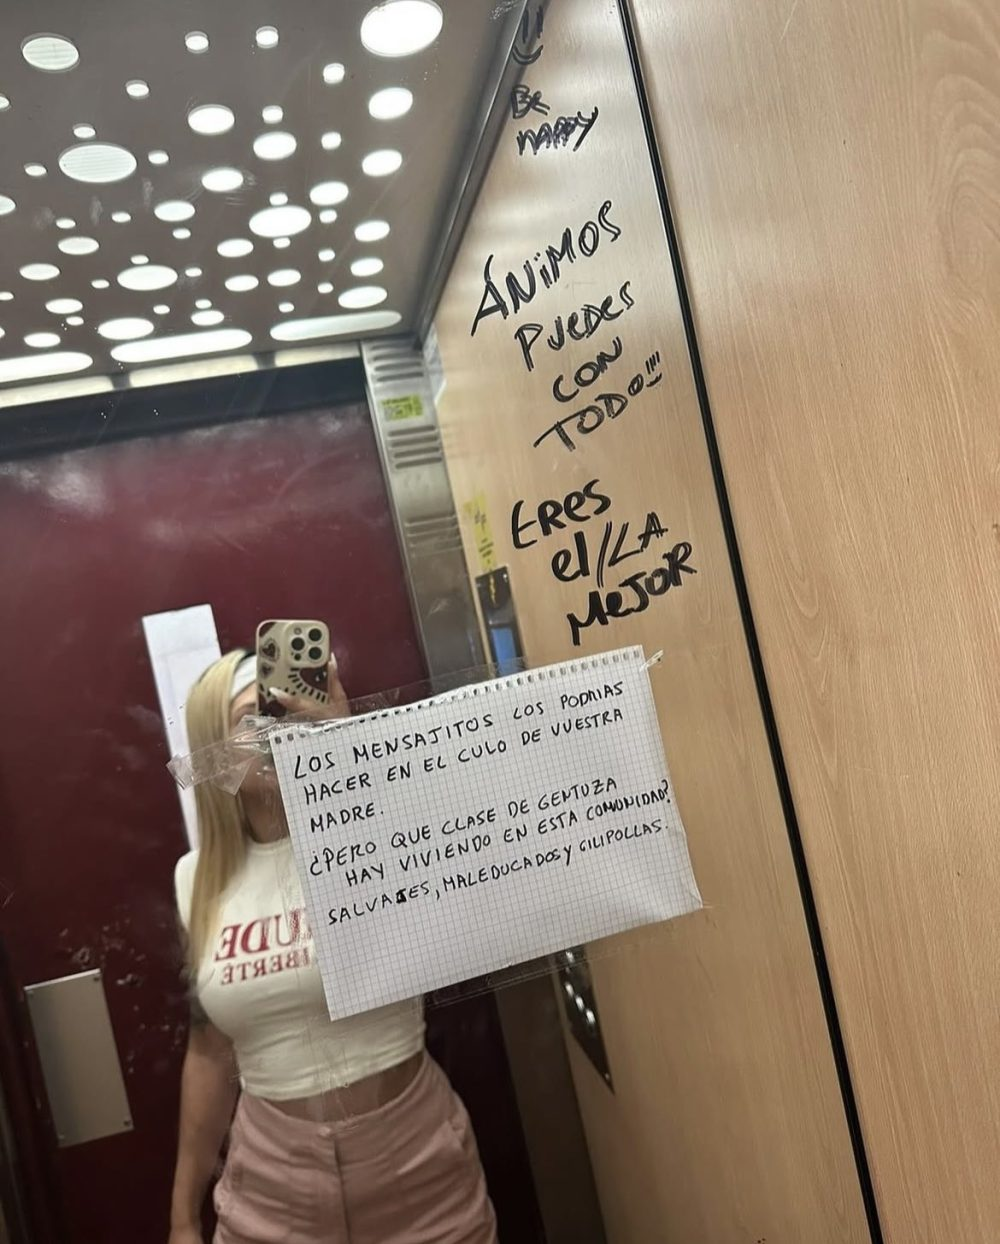 Be
HAPPY
ÁNiMOS
PUEDES
CON
TODO!!!
ERes
el/LA
MeJOR
LOS MENSAJITOS LOS PODRIAS
HACER EN EL CULO DE VUESTRA
MADRE.
¿PERO QUE CLASE DE GENTUZA
HAY VIVIENDO EN ESTA COMUNIDAD?
SALVAJES, MALEDUCADOS Y GILIPOLLAS.
UDE
IBERTÉ